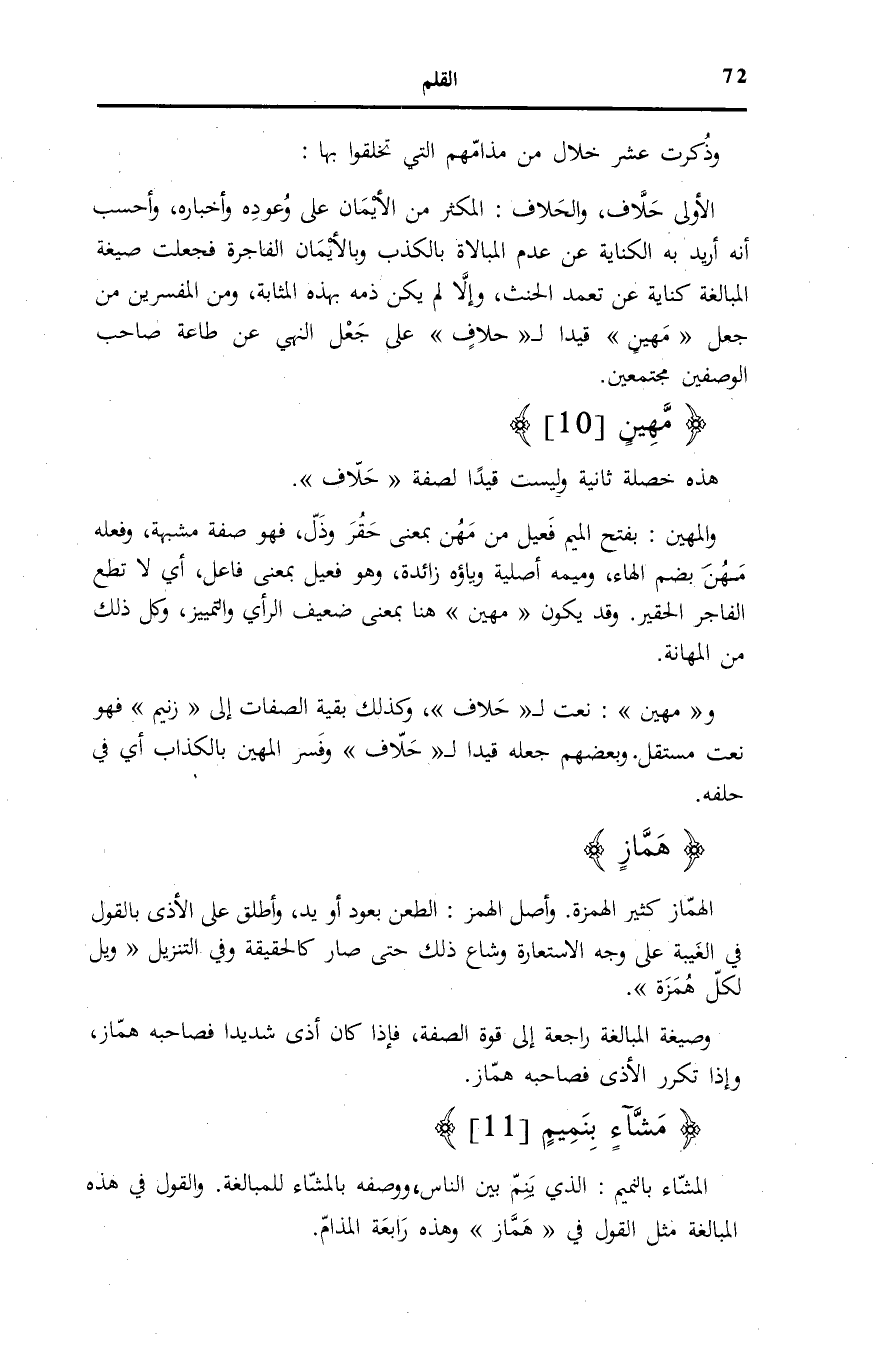 72
القلم
وذُكرت عشر خلال من مذامّهم التي تخلقوا بها :
الأولى حَلَّاف، والحَلاف : المكثر من الأيْمَان على وُعودِه وأخباره، وأحسب
أنه أريد به الكناية عن عدم المبالاة بالكذب وبالأيْمَان الفاجرة فجعلت صيغة
المبالغة كناية عن تعمد الحنث، وإلَّا لم يكن ذمه بهذه المثابة، ومن المفسرين من
جعل « مَهينٍ » قيدا لـ« حلافٍ » على جَعْل النهي عن طاعة صاحب
الوصفين مجتمعين.
﴿ مَّهِينٍ [10] ﴾
هذه خصلة ثانية وليست قيدًا لصفة « حَلّاف ».
والمهين : بفتح الميم فَعيل من مَهُن بمعنى حَقُرَ وذَلّ، فهو صفة مشبهة، وفعله
مَهُنَ بضم الهاء، وميمه أصلية وياؤه زائدة، وهو فعيل بمعنى فاعل، أي لا تطع
الفاجر الحقير. وقد يكون « مهين » هنا بمعنى ضعيف الرأي والتمييز، وكل ذلك
من المهانة.
و« مهين » : نعت لـ« حَلاف »، وكذلك بقية الصفات إلى « زنيم » فهو
نعت مستقل. وبعضهم جعله قيدا لـ« حَلّاف » وفَسر المهين بالكذاب أي في
حلفه.
﴿ هَمَّازٍ ﴾
الهمّاز كثير الهمزة. وأصل الهمز : الطعن بعود أو يد، وأطلق على الأذى بالقول
في الغَيبة على وجه الاستعارة وشاع ذلك حتى صار كالحقيقة وفي التنزيل « ويل
لكلّ هُمَزَة ».
وصيغة المبالغة راجعة إلى قوة الصفة، فإذا كان أذى شديدا فصاحبه همّاز،
وإذا تكرر الأذى فصاحبه همّاز.
﴿ مَشَّآءٍ بِنَمِيمٍ [11] ﴾
المشّاء بالنميم : الذي يَنِمّ بين الناس، ووصفه بالمشّاء للمبالغة. والقول في هذه
المبالغة مثل القول في « هَمَّاز » وهذه رَابعَة المذامّ.